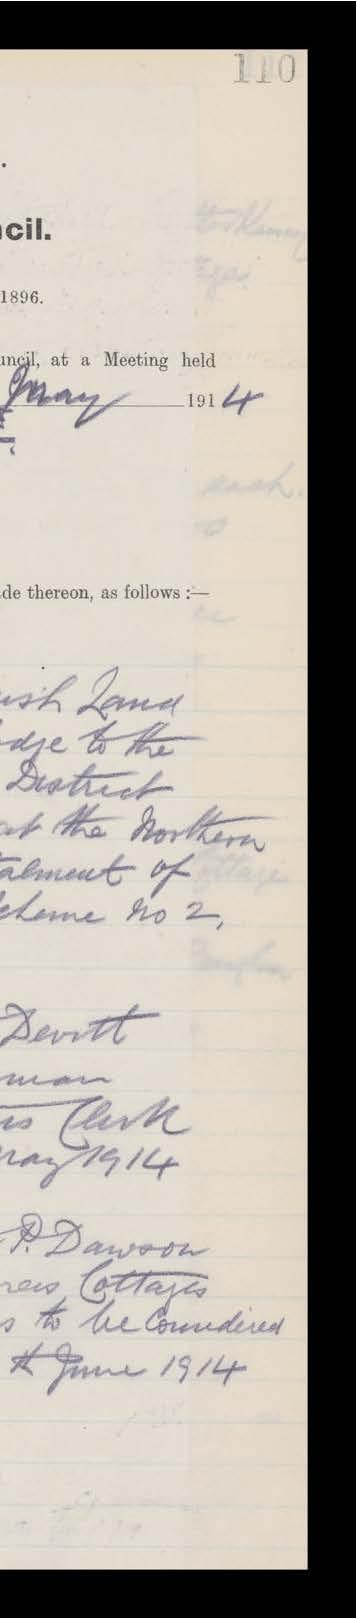 110
cil.
1896.
uncil, at a Meeting held
May 1914
de thereon, as follows :—
ish Land
odge to the
District
at the Northern
talment of
cheme No 2,
Devitt
man
Clerk
May 1914
P. Dawson
Cottages
s to be Considered
th June 1914